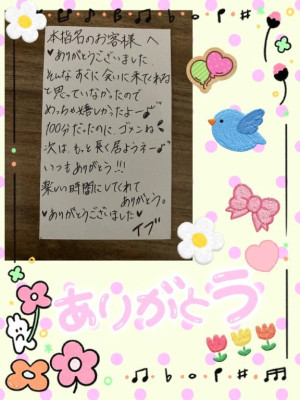 本指名のお客様へ
♥ありがとうございました
そんなすぐに会いに来てくれる
と思っていなかったので
めっちゃ嬉しかったよー♪
100分だったのに、ゴメンね
次はもっと長く居ようネー♪
いつもありがとう!!!
楽しい時間にしてくれて
ありがとう。
♥ありがとうございました♥
イブ
ありがとう